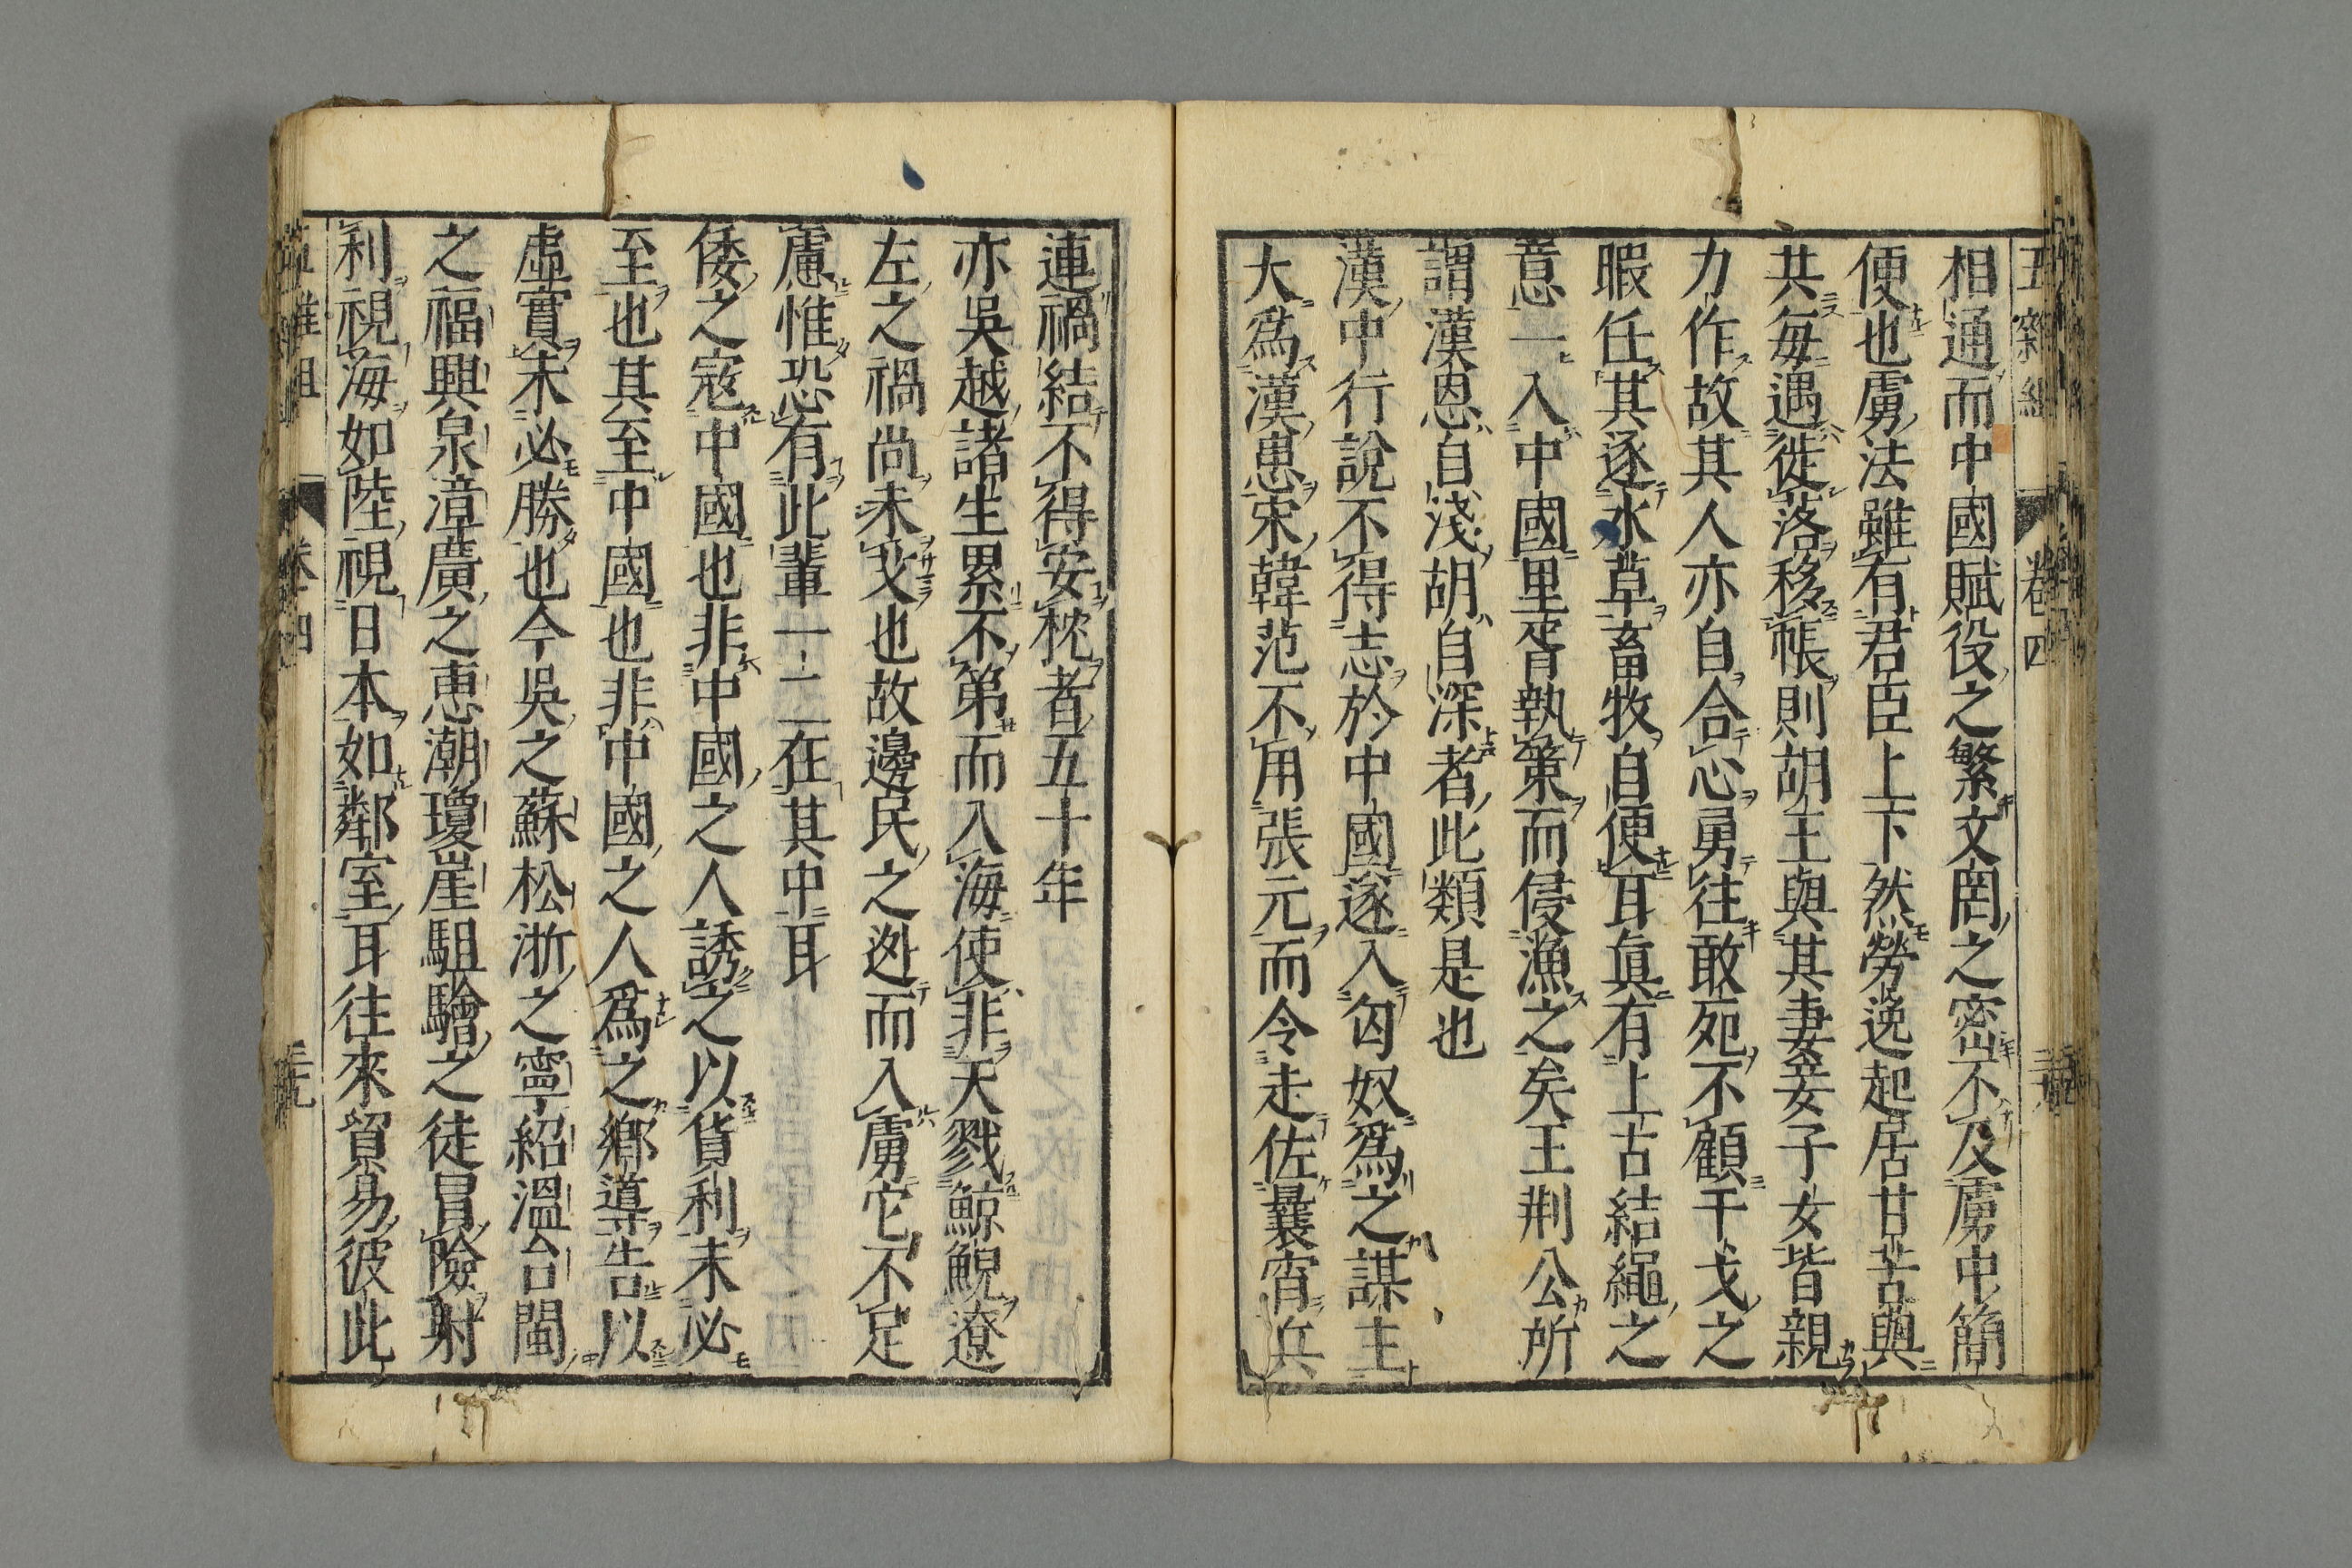 五雜組 卷四
相通而中國賦役之繁文罔之密不及虜中簡
便也虜法雖有君臣上下然勞逸起居甘苦與
共每遇徙落移帳則胡王與其妻妾子女皆親
力作故其人亦自合心勇往敢死不顧干戈之
暇任其逐水草畜牧自便耳眞有上古結繩之
意一入中國里胥執策而侵漁之矣王荆公所
謂漢恩自淺胡自深者此類是也
漢中行說不得志於中國遂入匈奴爲之謀主
大爲漢患宋韓范不用張元而令走佐曩宵兵
連禍結不得安枕者五十年
亦吳越諸生累不第而入海使非天戮鯨鯢遼
左之禍尚未艾也故邊民之逃而入虜它不足
慮惟恐有此輩一二在其中耳
倭之寇中國也非中國之人誘之以貨利未必
至也其至中國也非中國之人爲之鄉導告以
虛實未必勝也今吳之蘇松浙之寧紹溫台閩
之福興泉漳廣之惠潮瓊崖駔驓之徒冒險射
利視海如陸視日本如鄰室耳往來貿易彼此
五雜組 卷四 三九